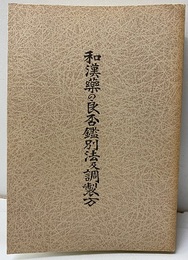 和漢薬の良否鑑別法及調製方